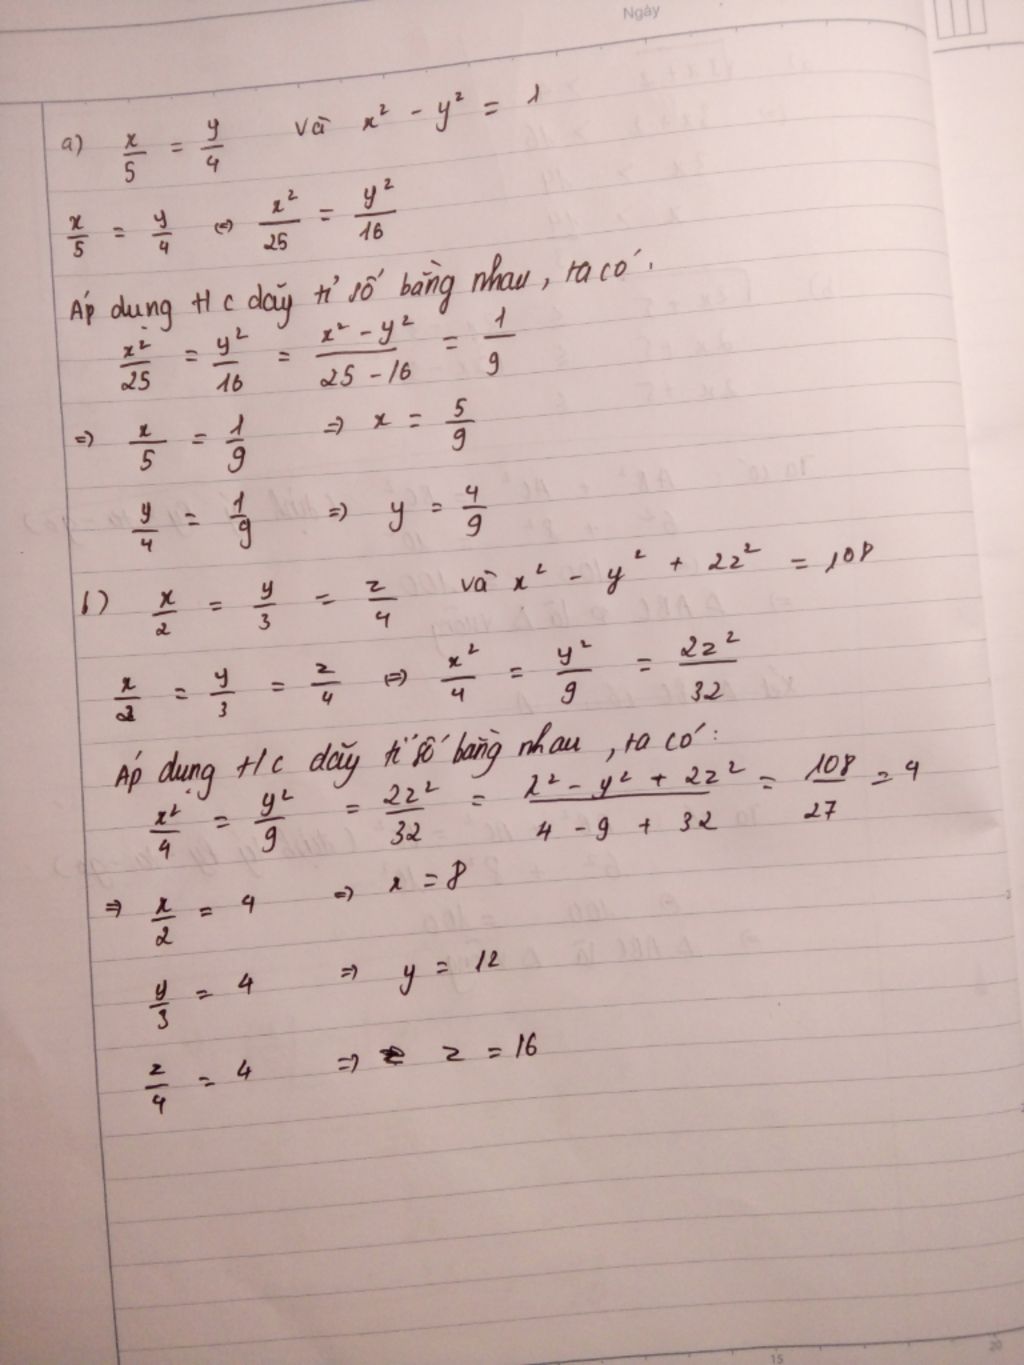 Ngày
a) x/5 = y/4 và x² - y² = 1
x/5 = y/4 ⇔ x²/25 = y²/16
Áp dụng t/c dãy tỉ số bằng nhau, ta có.
x²/25 = y²/16 = (x² - y²)/(25 - 16) = 1/9
⇒ x/5 = 1/9 ⇒ x = 5/9
y/4 = 1/9 ⇒ y = 4/9
b) x/2 = y/3 = z/4 và x² - y² + 2z² = 108
x/2 = y/3 = z/4 ⇔ x²/4 = y²/9 = 2z²/32
Áp dụng t/c dãy tỉ số bằng nhau, ta có:
x²/4 = y²/9 = 2z²/32 = (x² - y² + 2z²)/(4 - 9 + 32) = 108/27 = 4
⇒ x/2 = 4 ⇒ x = 8
y/3 = 4 ⇒ y = 12
z/4 = 4 ⇒ z = 16
15
20